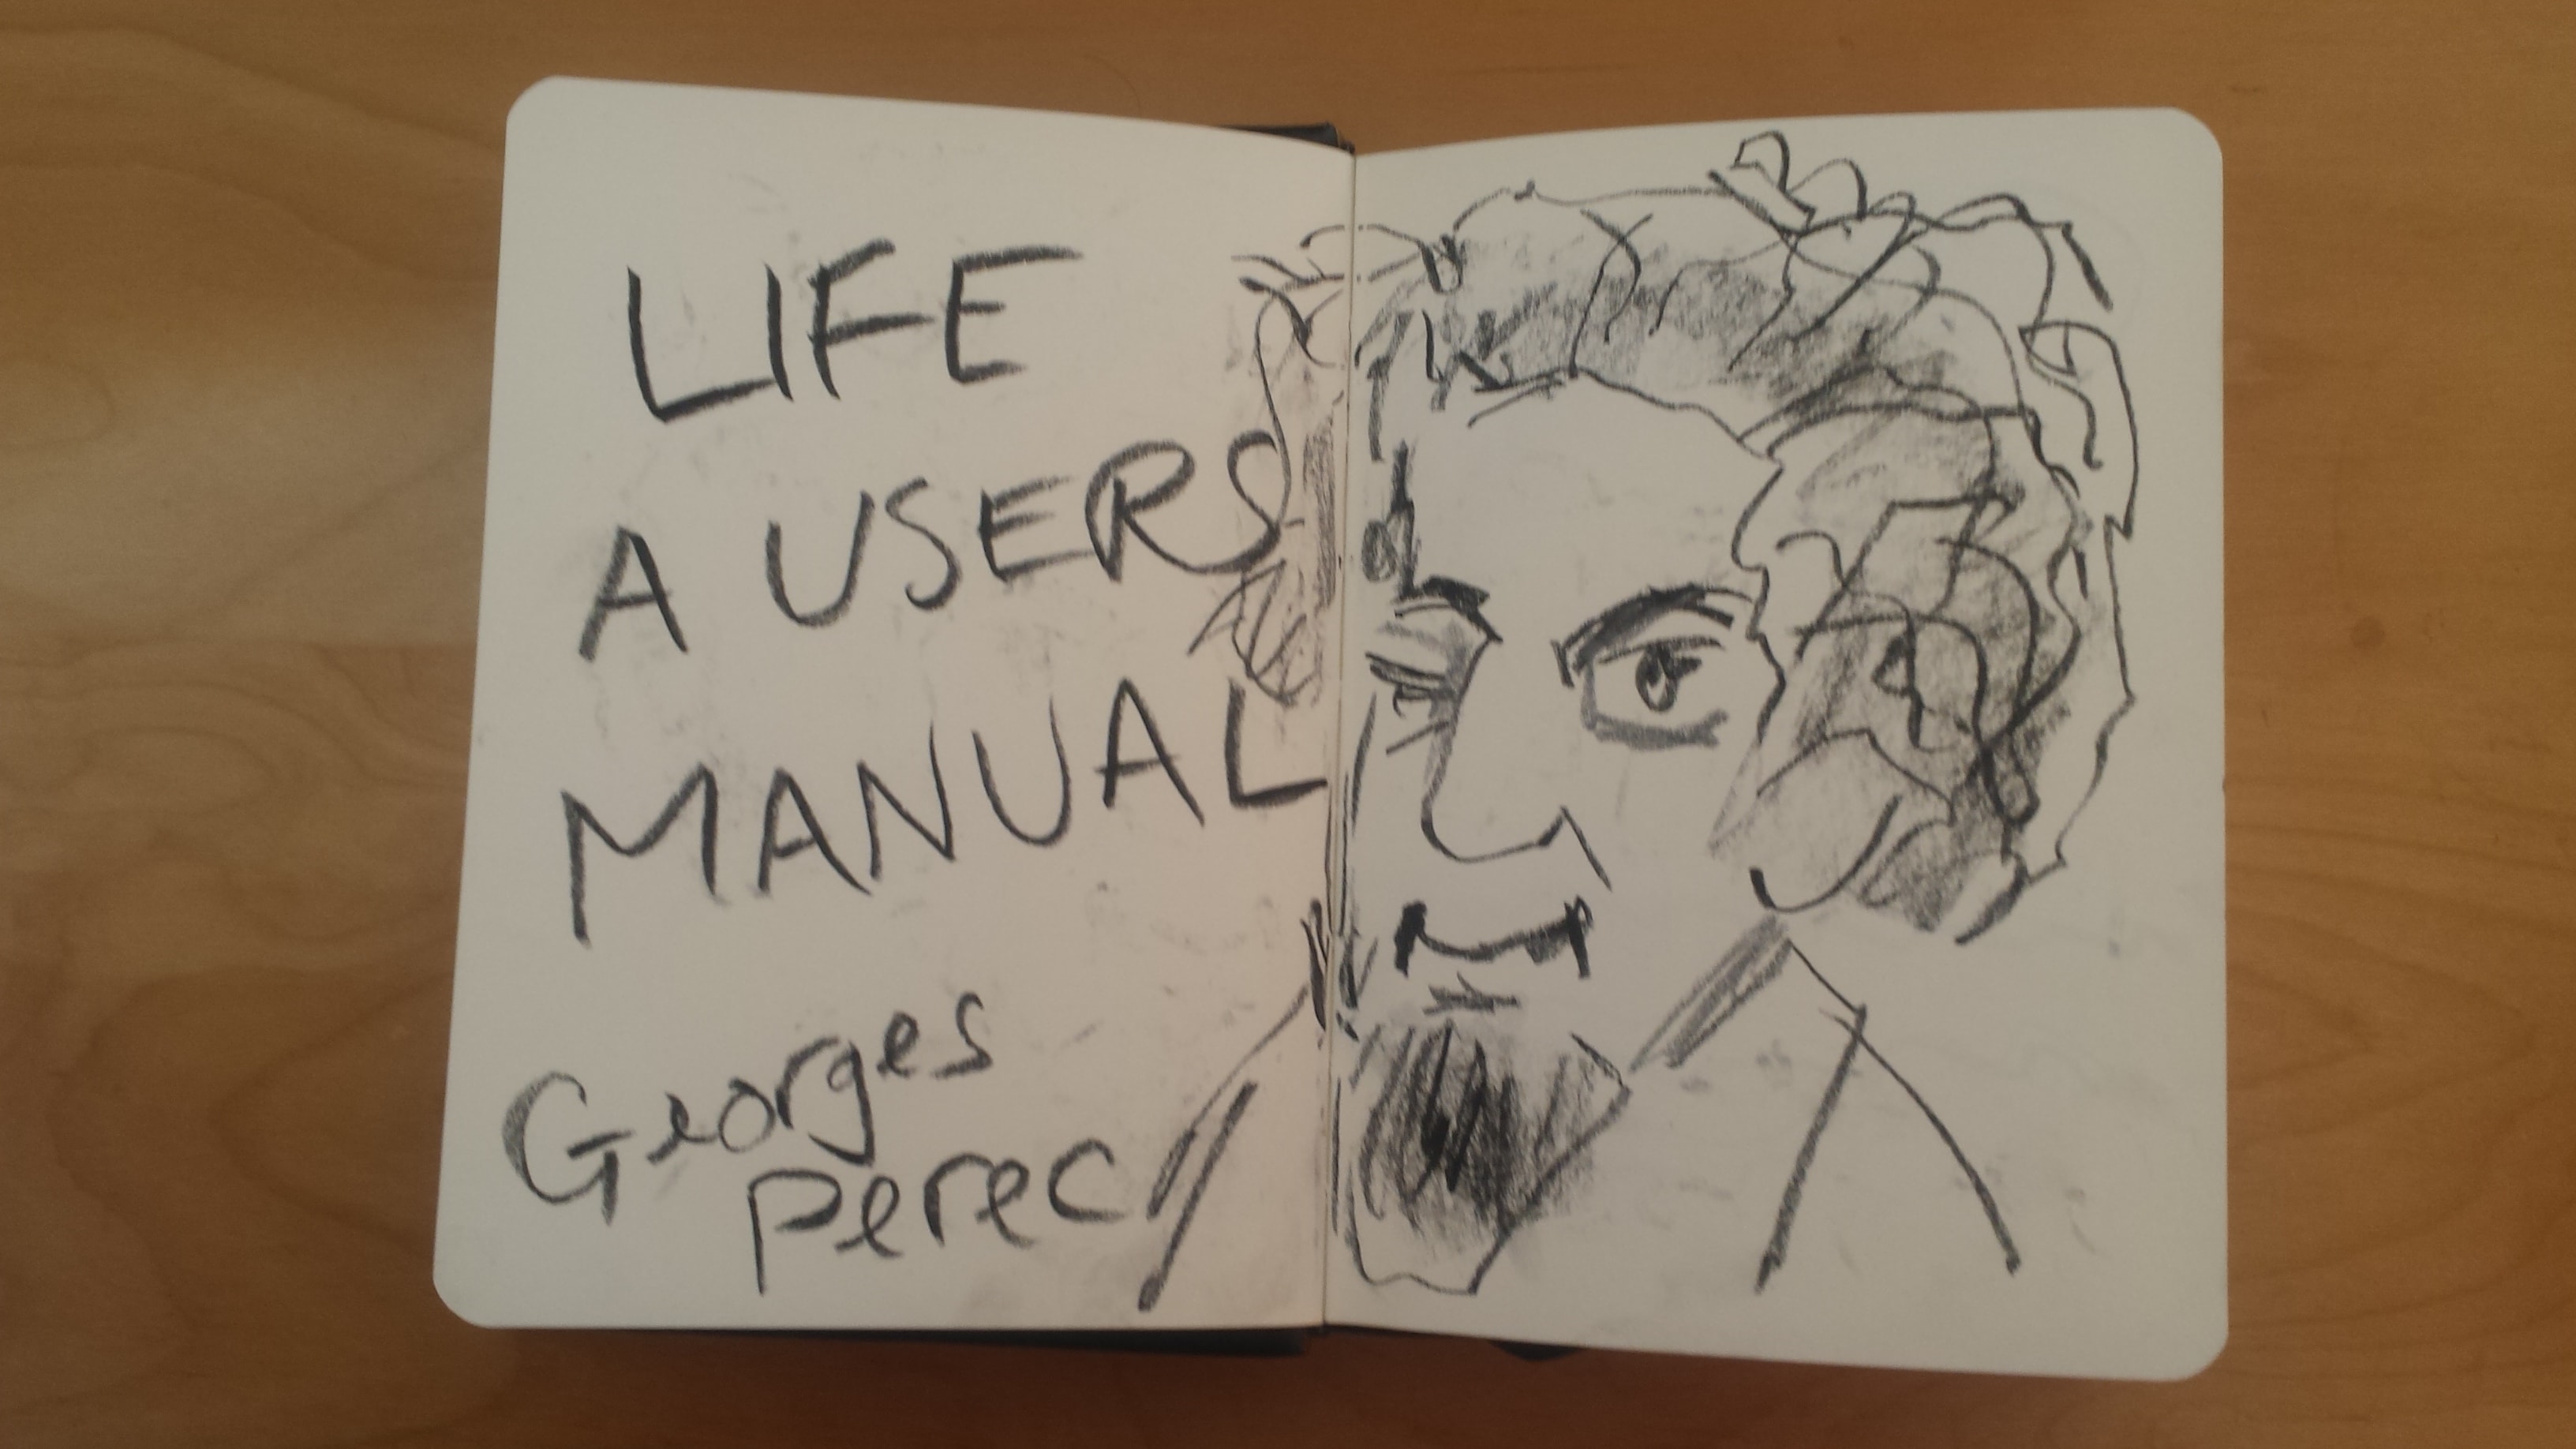 LIFE
A USERS
MANUAL
Georges
Perec